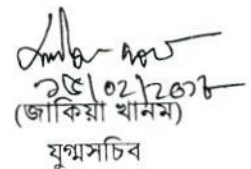 ১৫/০২/২০১৮
(জাকিয়া খানম)
যুগ্মসচিব